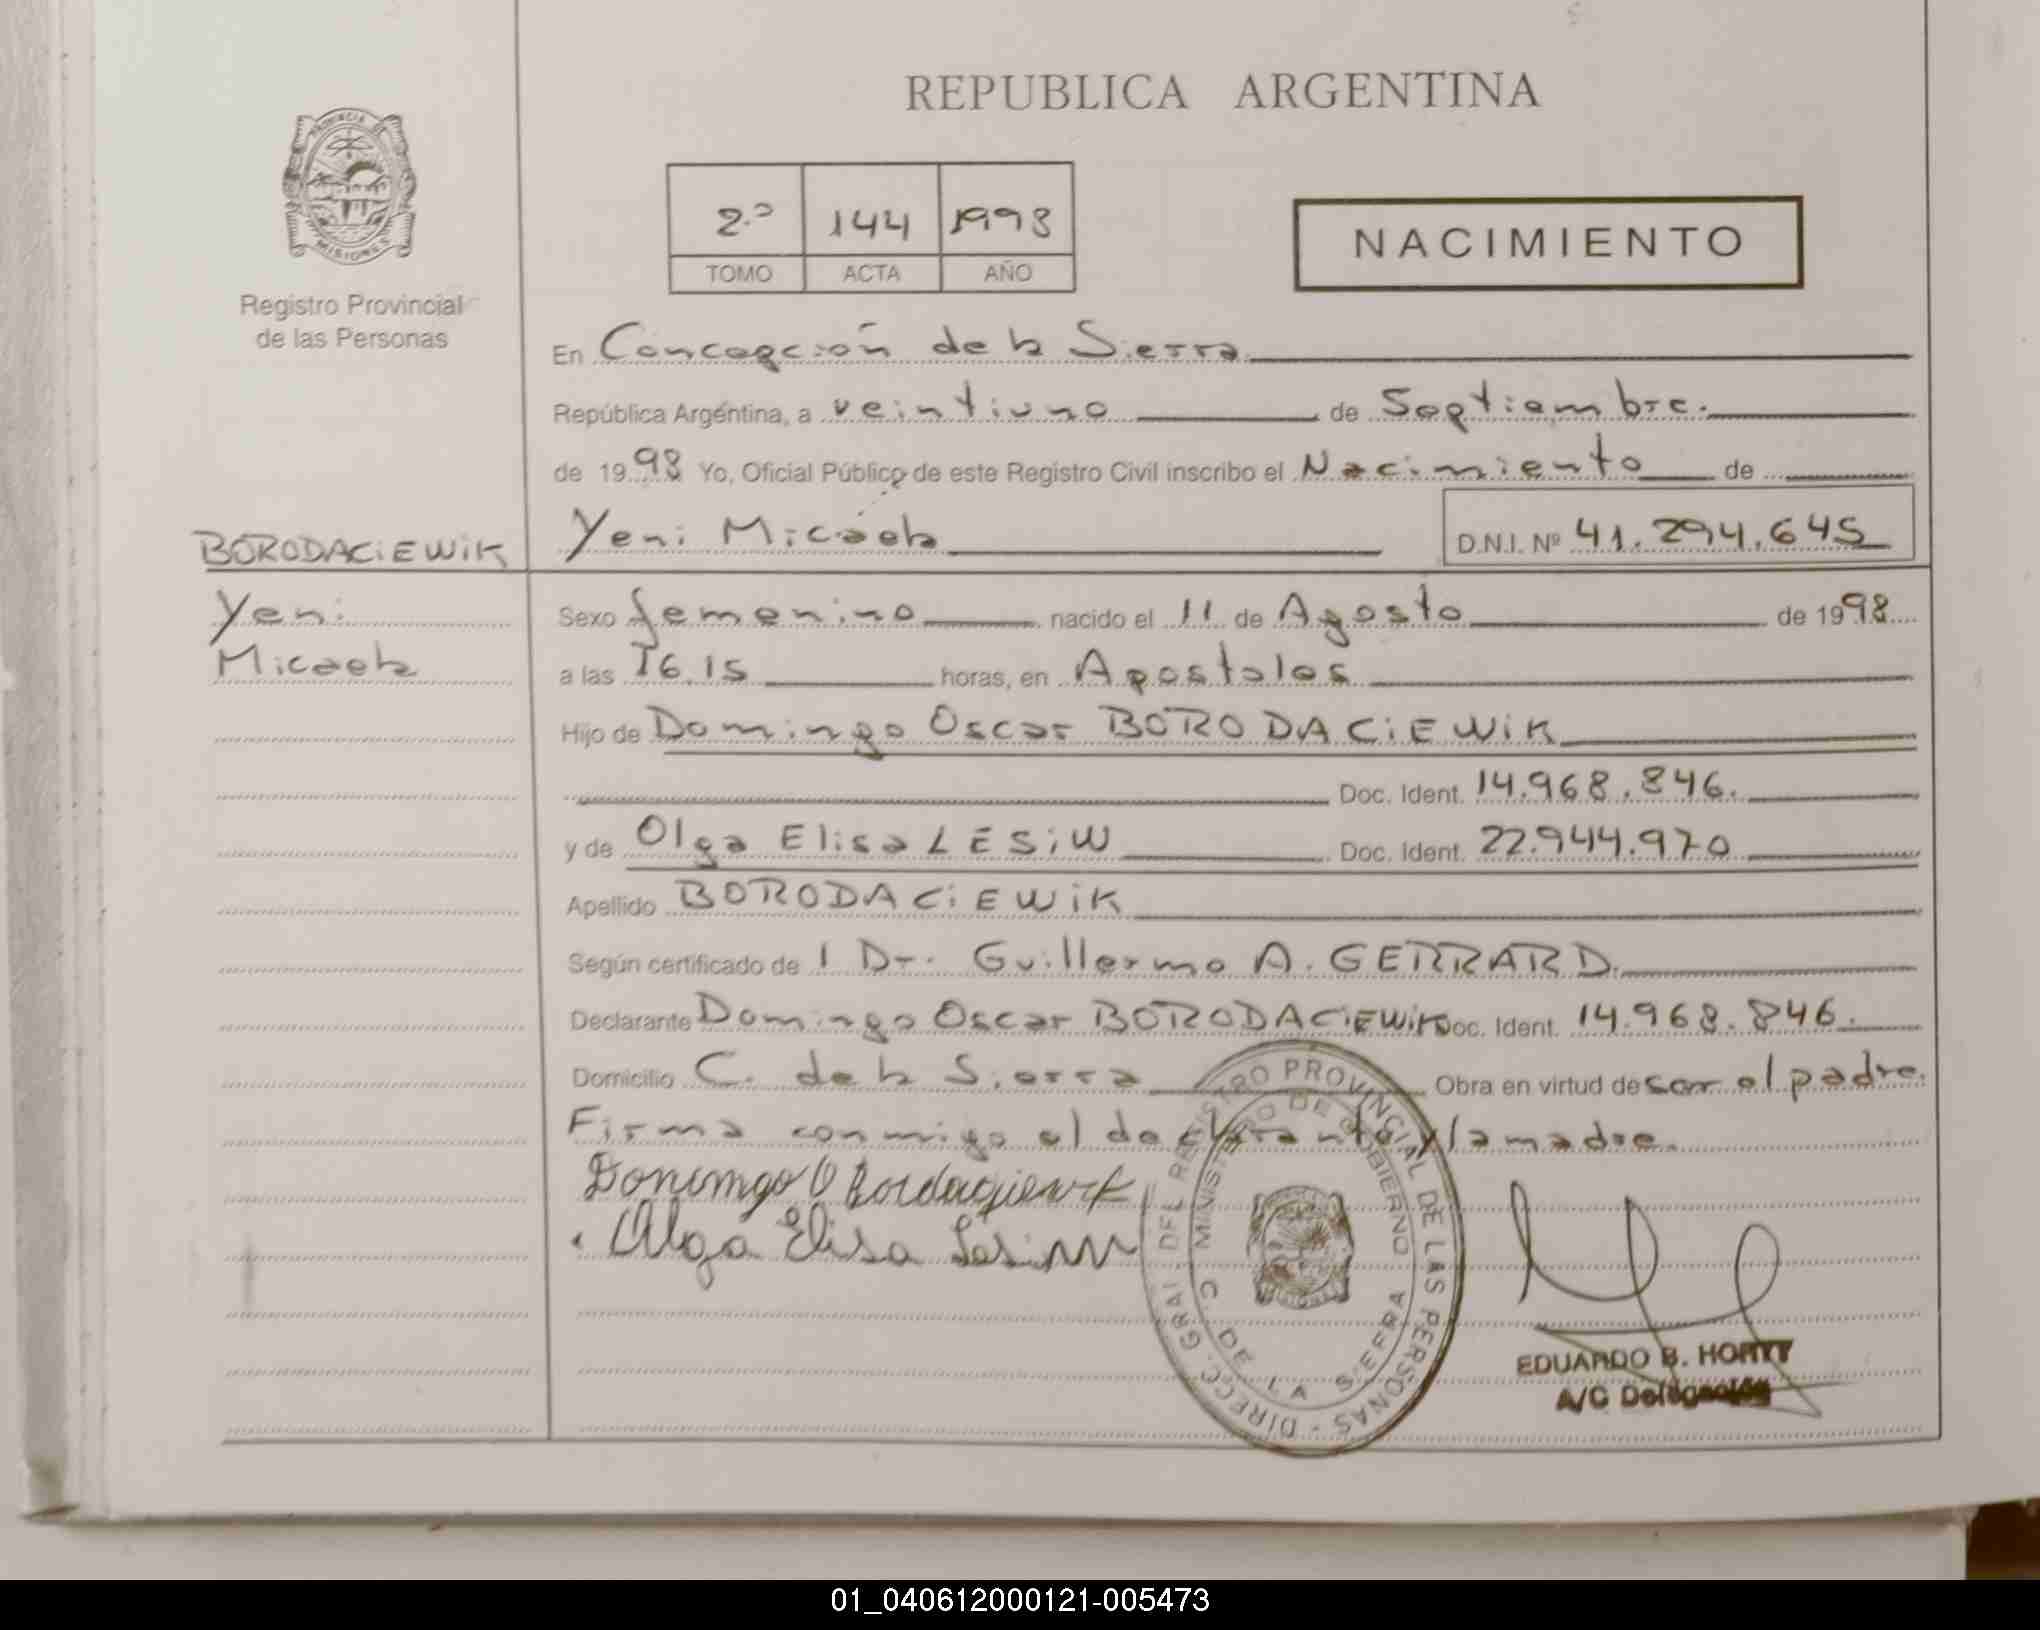 REPUBLICA ARGENTINA
PROVINCIA DE
MISIONES
Registro Provincial
de las Personas
2.º 144 1998
TOMO ACTA AÑO
NACIMIENTO
En Concepción de la Sierra
República Argentina, a veintiuno de Septiembre.
de 1998 Yo, Oficial Público de este Registro Civil inscribo el Nacimiento de
BORODACiEWiK
Yeni Micaela D.N.I. Nº 41.294.645
Yeni
Micaela
Sexo femenino nacido el 11 de Agosto de 1998
a las 16.15 horas, en Apostoles
Hijo de Domingo Oscar BORODACiEWiK
Doc. Ident. 14.968.846.
y de Olga Elisa LESiW Doc. Ident. 22.944.970
Apellido BORODACiEWiK
Según certificado de 1 Dr. Guillermo A. GERRARD.
Declarante Domingo Oscar BORODACiEWiK Doc. Ident. 14.968.846.
Domicilio C. de la Sierra Obra en virtud de ser el padre.
Firma conmigo el declarante y la madre.
Olga Elisa
DIRECC. GRAL DEL REGISTRO PROVINCIAL DE LAS PERSONAS -
MINISTERIO DE GOBIERNO
C. DE LA SIERRA
EDUARDO B.
A/C
01_040612000121-005473